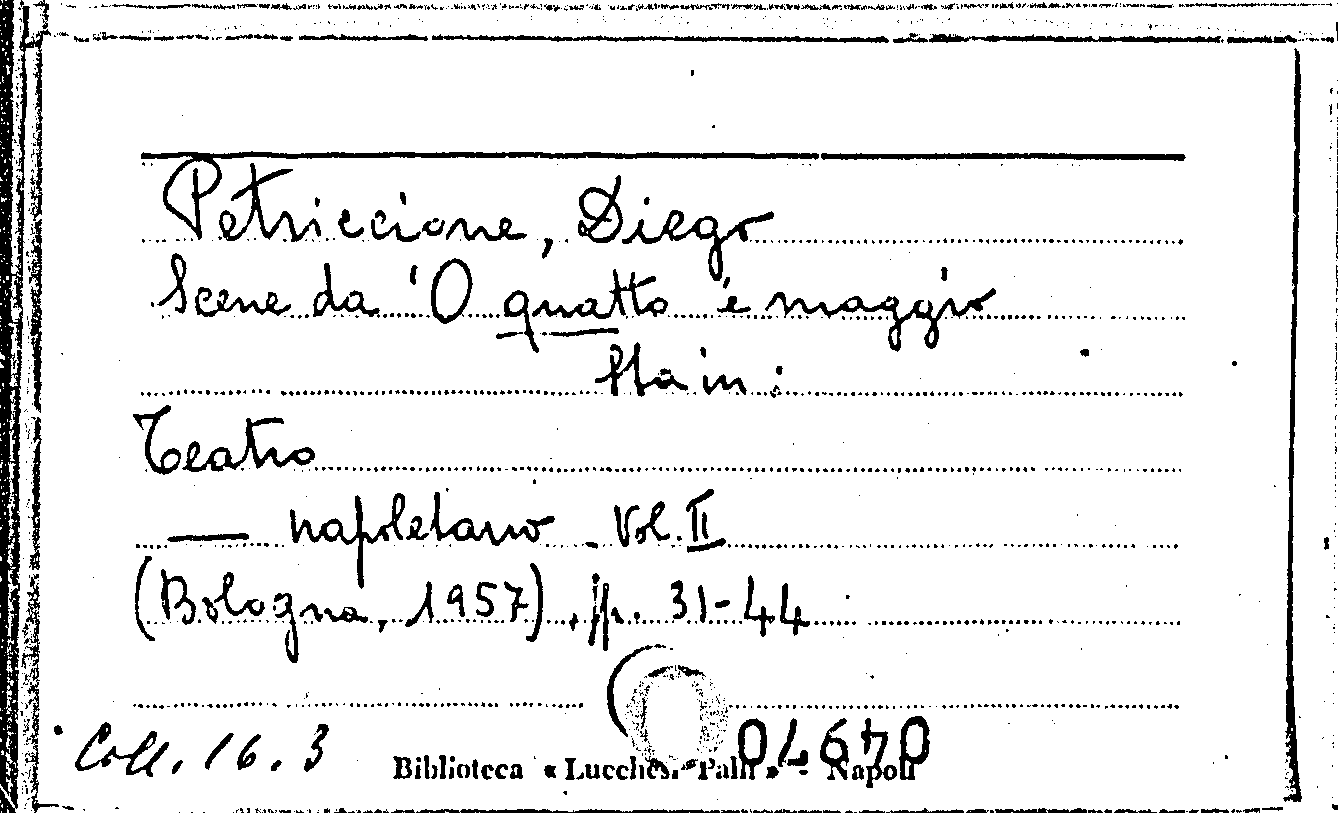 Petriccione, Diego
Scene da 'O quatto 'e maggio
Sta in:
Teatro
— napoletano - Vol. II
(Bologna, 1957), pp. 31-44
Coll. 16.3
Biblioteca « Lucchesi-Palli » - Napoli